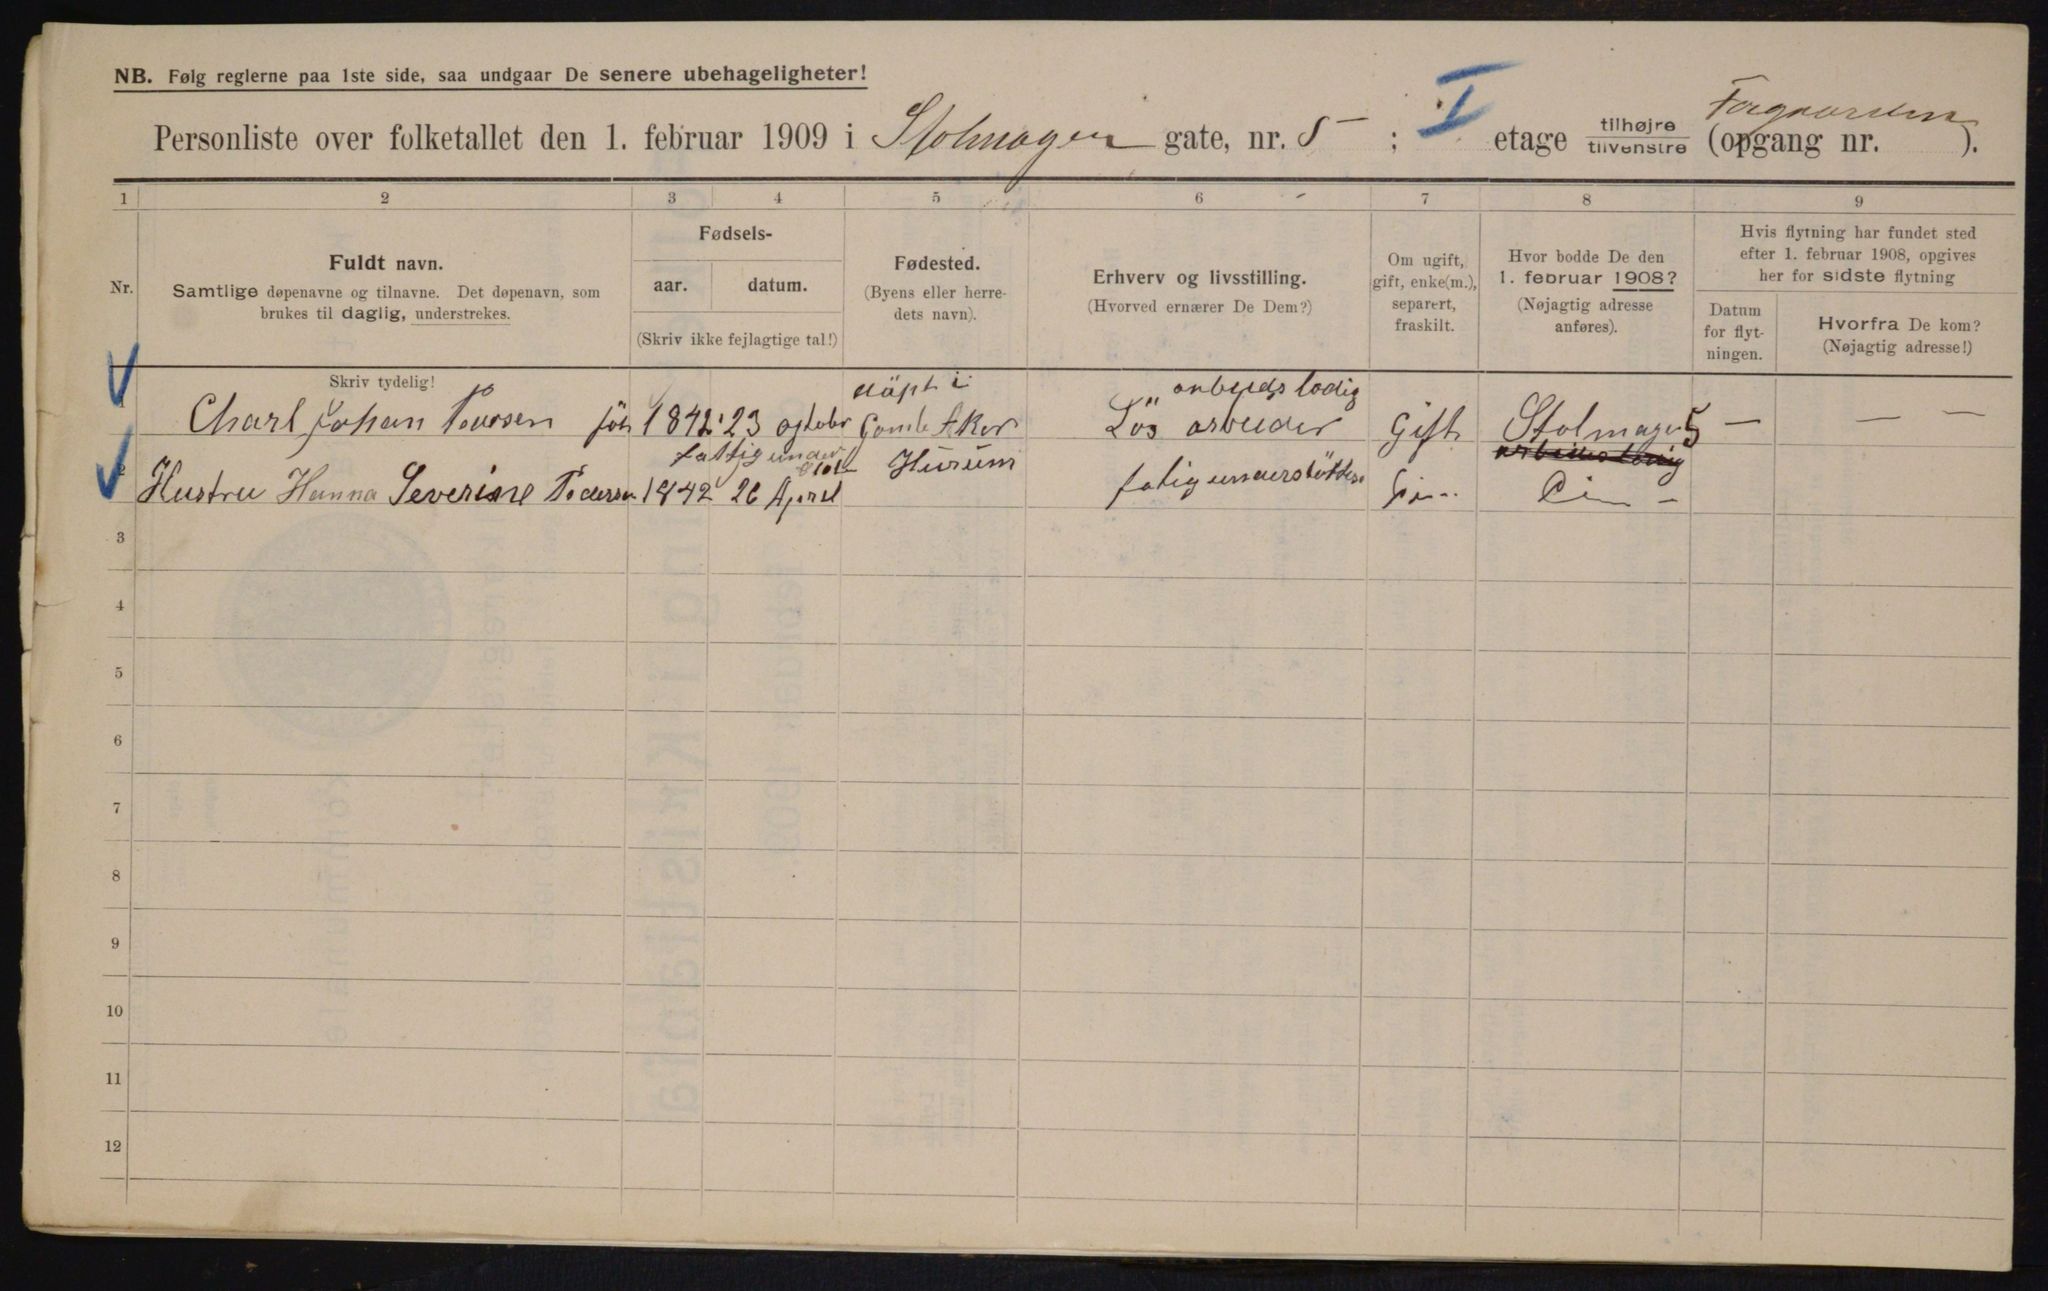 NB. Følg reglerne paa 1ste side, saa undgaar De senere ubehageligheter!
Personliste over folketallet den 1. februar 1909 i Stolmager gate, nr. 5 ; I etage tilhøjre tilvenstre (opgang nr. ).
1 2 3 4 5 6 7 8 9
Nr.
Fuldt navn.
Samtlige døpenavne og tilnavne. Det døpenavn, som
brukes til daglig, understrekes.
Skriv tydelig!
Fødsels-
aar. datum.
(Skriv ikke fejlagtige tal!)
Fødested.
(Byens eller herre-
dets navn).
Erhverv og livsstilling.
(Hvorved ernærer De Dem?)
Om ugift,
gift, enke(m.),
separert,
fraskilt.
Hvor bodde De den
1. februar 1908?
(Nøjagtig adresse
anføres).
Hvis flytning har fundet sted
efter 1. februar 1908, opgives
her for sidste flytning
Datum
for flyt-
ningen.
Hvorfra De kom?
(Nøjagtig adresse!)
döpt i arbeidslodig
1 Charl Johan 1842 23 oktober Gamle Aker Lös arbeider Gift Stolmager 5 — — —
2 Hustru Hanna Severine Pedersen 1842 26 April Hurum fatigunderstöttelse
3
4
5
6
7
8
9
10
11
12